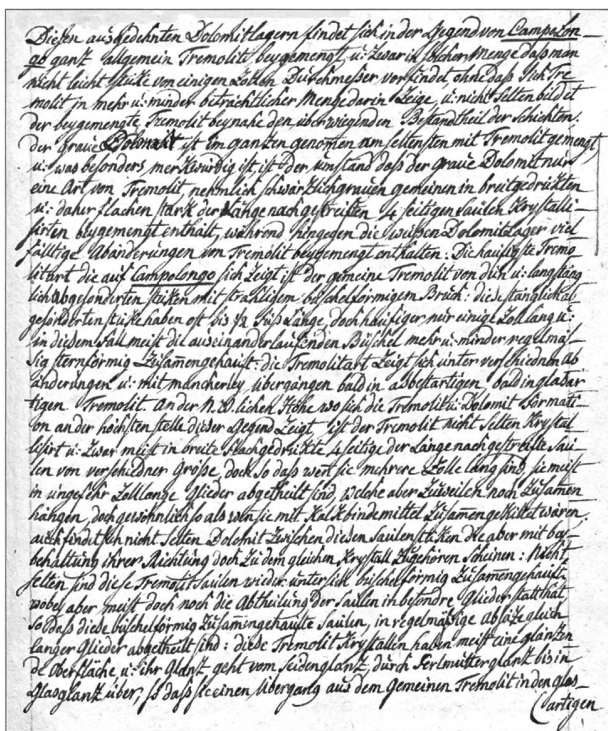 Diesen ausgedehnten Dolomitlagern findet sich in der Gegend von Campolon-
go ganz allgemein Tremolit beygemengt, u: zwar in solcher Menge daß man
nicht leicht stüke von einigen Zollen Durchmesser vorfindet, ohne daß sich Tre-
molit in mehr u: minder beträchtlicher Menge darin Zeige, u: nicht selten bildet
der beygemengte Tremolit beynahe den überwiegenden Bestandtheil der Schichten.
der graue Dolomit ist im ganzen genomen am seltensten mit Tremolit gemengt,
u: was besonders merkwürdig ist, ist der umstand daß der graue Dolomit nur
eine Art von Tremolit nehmlich schwärzlichgrauen gemeinen in breitgedrükten
u: daher flachen stark der Länge nach gestreiften 4 seitigen Saülen Krystalli-
sirten beygemengt enthält, während hingegen die weißen Dolomitlager viel
fälltige Abänderungen von Tremolit beygemengt enthalten. Die haüfigste Tremo-
litart die auf Campolongo sich zeigt ist der gemeine Tremolit von dün u: langstäng
lich abgesonderten stüken mit strahligem büschelförmigem Bruch: diese stänglich ab
gesonderten stüke haben oft bis 1/2 Fuß Länge, doch haüfiger nur einige Zoll lang u:
in diesem Fall meist die auseinanderlaufenden Büschel mehr u: minder regelmäs-
sig sternförmig Zusamengehaüft: die Tremolitart Zeigt sich unter verschiednen Ab
änderungen u: mit mancherley übergängen bald in asbestartigen bald in glasar
tigen Tremolit. An der N.O.lichen Höhe wo sich die Tremolit u: Dolomit Formati-
on an der höchsten stelle dieser Gegend Zeigt ist der Tremolit nicht selten Krystal
lisirt u: Zwar meist in breite flachgedrükte 4 seitige der Länge nach gestreifte Saü-
len von verschiedner Größe, doch so daß wen sie mehrere Zolle lang sind, sie meist
in ungefehr Zolllange Glieder abgetheilt sind, welche aber Zuweilen noch Zusamen
hängen, doch gewöhnlich so als wen sie mit Kalkbindemittel Zusamengekittet wären,
auch findet sich nicht selten Dolomit Zwischen diesen Saülenstüken die aber mit bey-
behaltung ihrer Richtung doch Zu dem gleichen Krystall Zugehören scheinen: Nicht
selten sind diese Tremolit Saülen wieder unter sich büschelförmig Zusamengehaüft,
wobey aber meist doch noch die Abtheilung der Saülen in besondre Glieder statt hat
so daß diese büschelförmig Zusamengehaüfte Saülen, in regelmäßige absäze gleich
langer Glieder abgetheilt sind: diese Tremolit Krystallen haben meist eine glänzen
de Oberfläche u: ihr Glanz, geht vom Seidenglanz, durch Perlmutterglanz bis in
Glasglanz über, so daß sie einen Übergang aus dem Gemeinen Tremolit in den glas-
artigen